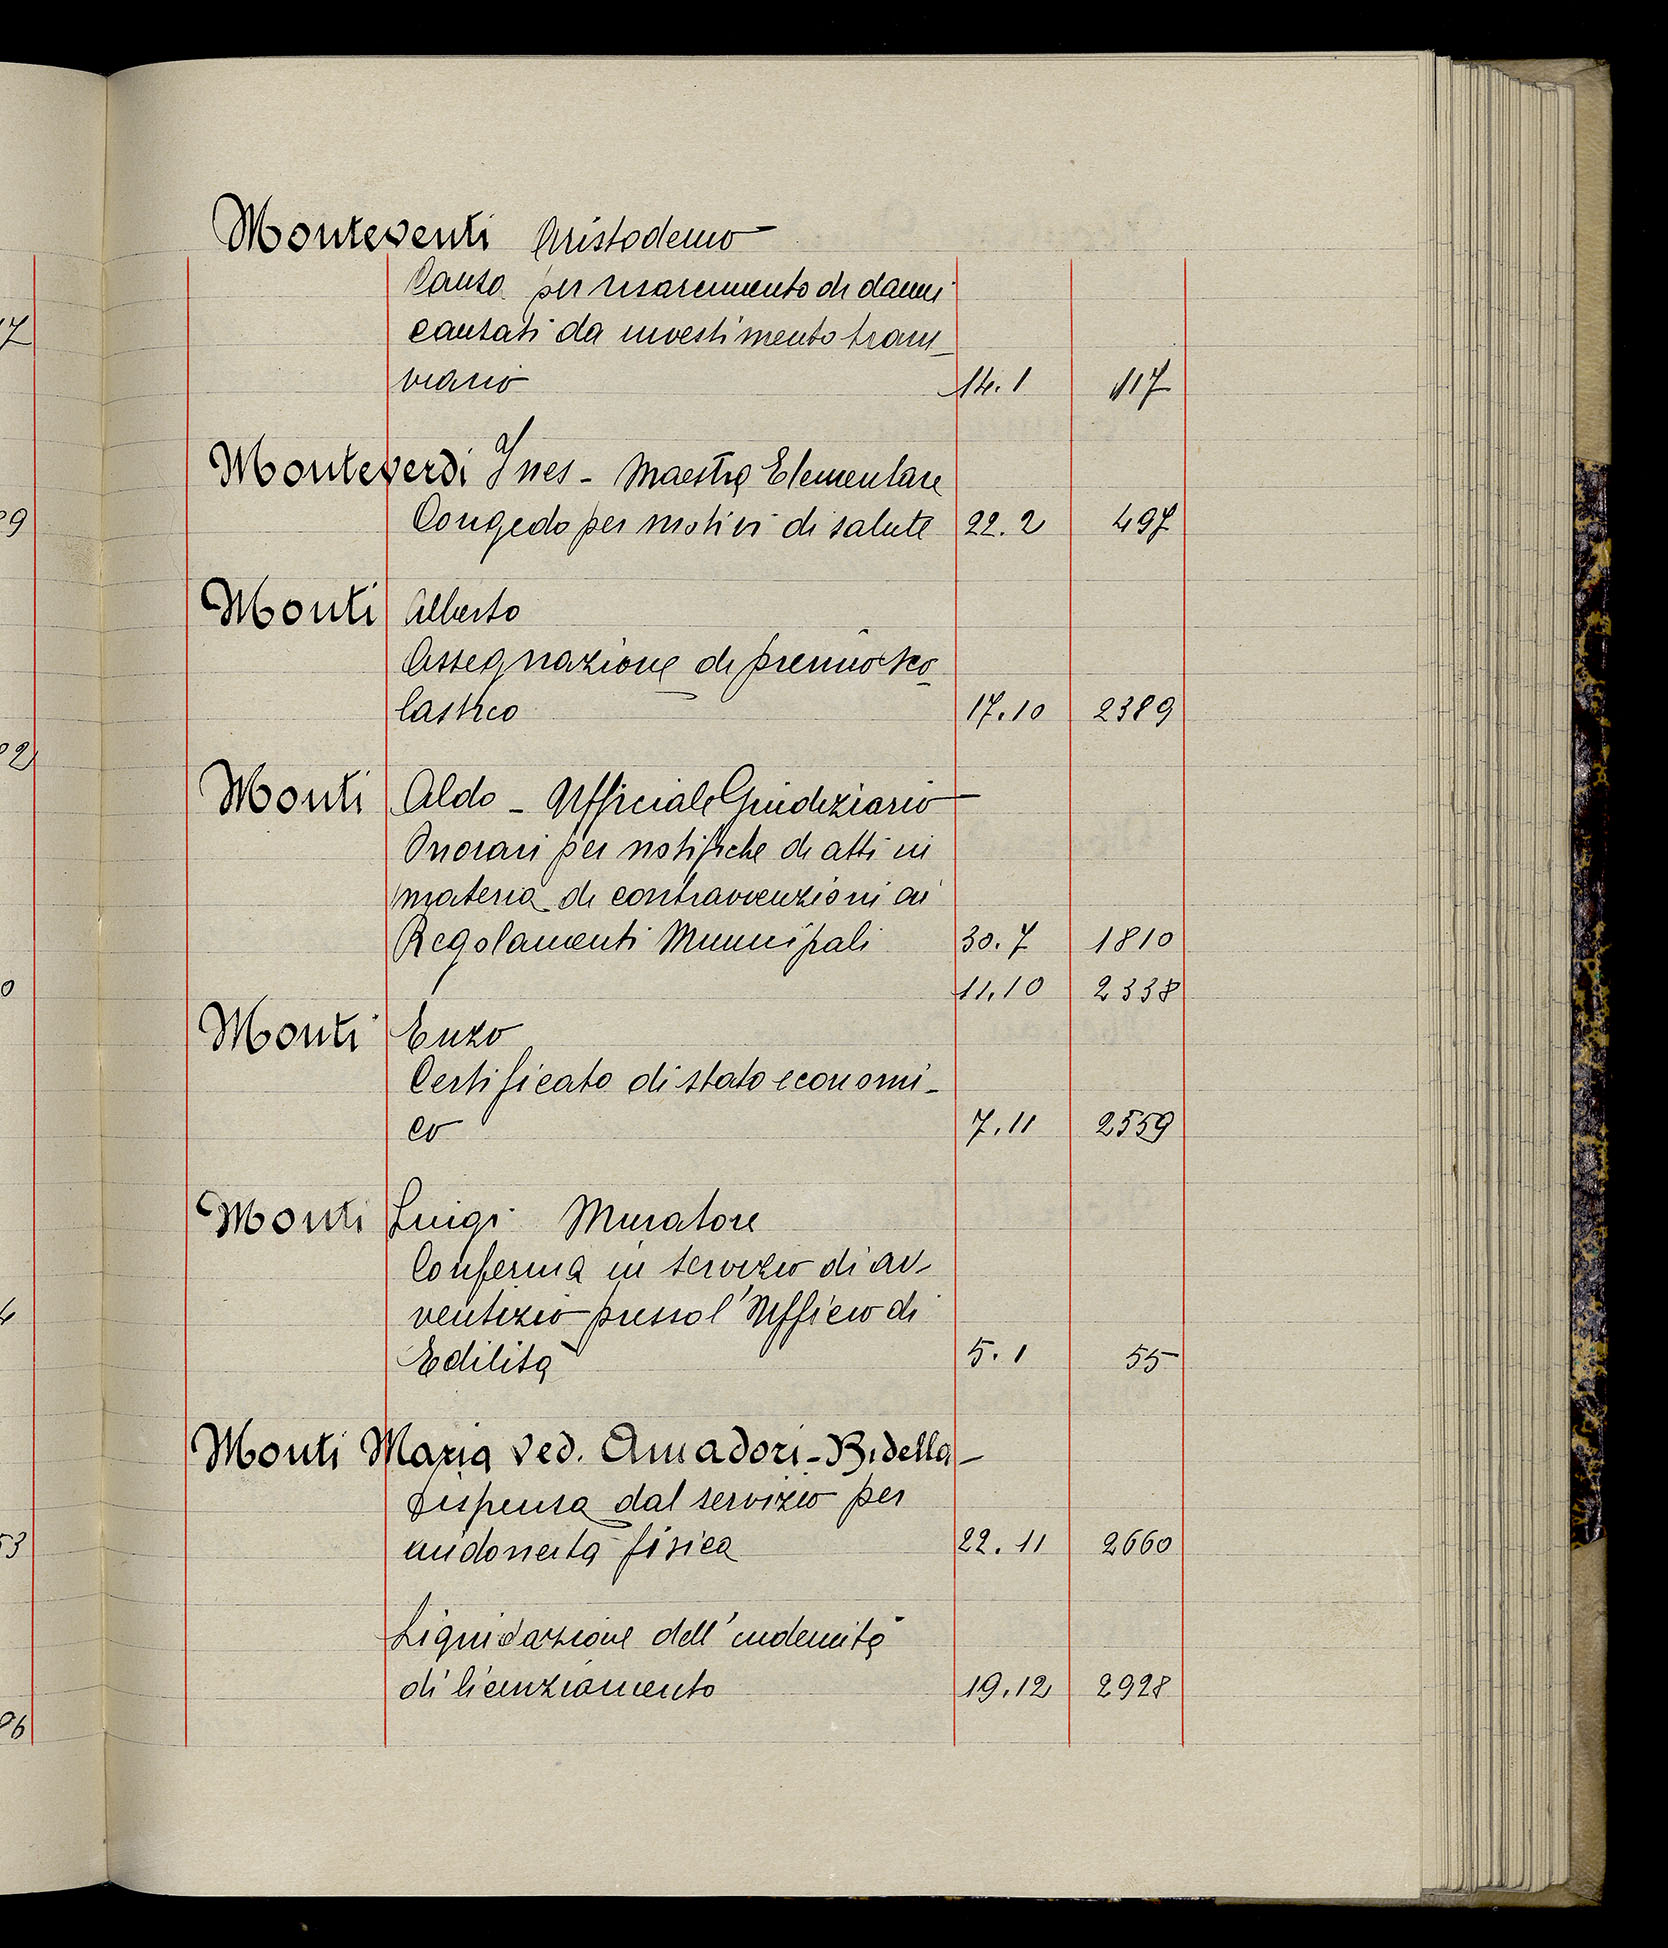 Monteventi Aristodemo
Causa per risarcimento di danni
causati da investimento tram-
viario 14.1 117
Monteverdi Ines - Maestra Elementare
Congedo per motivi di salute 22.2 497
Monti Alberto
Assegnazione di premio sco-
lastico 17.10 2389
Monti Aldo - Ufficiale Giudiziario
Onorari per notifiche di atti in
materia di contravvenzioni ai
Regolamenti Municipali 30.7 1810
11.10 2338
Monti Enzo
Certificato di stato economi-
co 7.11 2559
Monti Luigi Muratore
Conferma in servizio di av-
ventizio presso l'Ufficio di
Edilità 5.1 55
Monti Maria ved. Amadori - Bidella -
Dispensa dal servizio per
inidoneità fisica 22.11 2660
Liquidazione dell'indennità
di licenziamento 19.12 2928